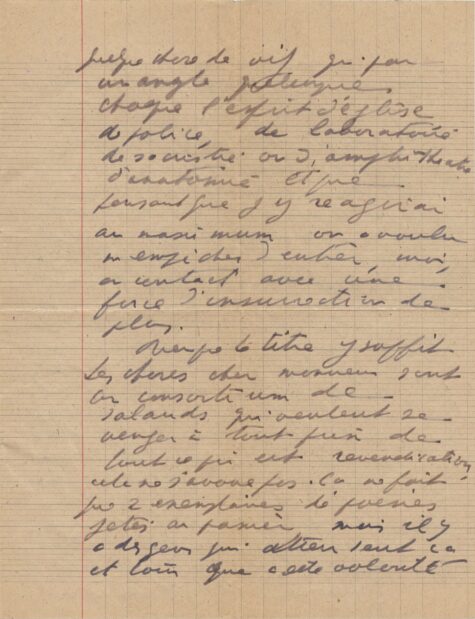 quelque chose de vif qui par
un angle quelconque
choque l'esprit d'église
de police, de laboratoire
de sacristie ou d'amphithéatre
d'anatomie et que
pensant que j'y reagirai
au maximum on a voulu
m empêcher d'entrer moi
en contact avec une
force d'insurrection de
plus.
Rien que le titre y suffit
Les choses cher monsieur sont
un consortium de
salauds qui veulent se
venger à tout prix de
tout ce qui est revendication,
cela ne s'avoue pas. Ca ne fait
que 2 exemplaires de poésies
jetés au panier mais il y
a des gens qui attendent ca
et loin que cette volonté